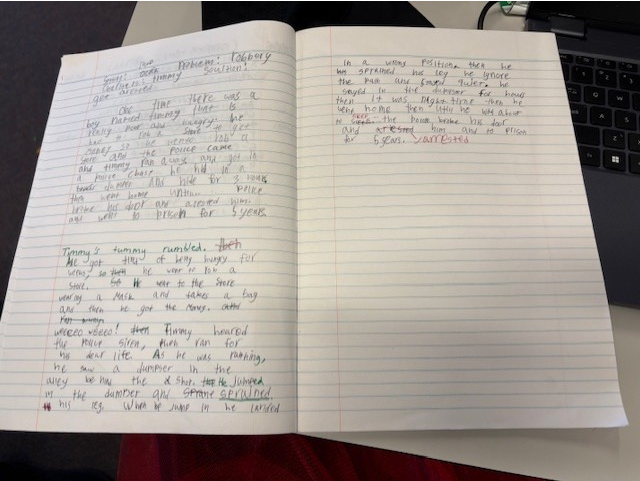 Problem: robbery
timmy Soultion:
get arrested
One time there was a
boy named timmy that is
really and hungry. he
to rob a Store to get
money so she went rob a
Store and the Police came
and timmy ran away and got in
a Police chase. he hid in a
dumper and hide for 3 hours
then went home Police
broke his door and arested him.
and went to Prison for 5 years
Timmy's tummy rumbled. then
He got tired of being hungry for
weeks, so then he went to rob a
Store. So He went to the Store
wearing a Mask and takes a bag
and then he got the money.
weeeo weeeo! then Timmy heared
the Police siren, then ran for
his dear life. As he was running,
he saw a dumpster in the
alley behind the Shop. He Jumped
in the dumpster and sprained
his leg. When he Jump in he landed
in a wrong Position. then he
sprained his leg he ignore
the Pain and quter. he
stayed in the dumpster for hours
then it was nightime then he
went home then he was about
to sleep the broke his door
and arrested him and to Prison
for 5 years. arrested